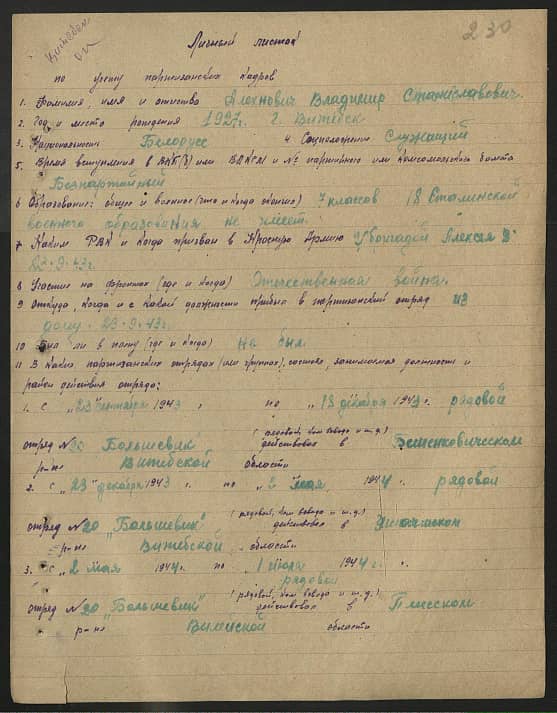 230
Личный листок
по учету партизанских кадров
1. Фамилия, имя и отчество Алехнович Владимир Станиславович.
2. Год и место рождения 1927г. г. Витебск
3. Национальность Белорус 4. Соцположение Служащий
5. Время вступления в ВКП(б) или ВЛКСМ и № партийного или комсомольского билета
Безпартийный
6 Образование: общее и военное (что и когда окончил) 7 классов 18 Сталинской
военного образования не имеет.
7. Каким РВК и когда призван в Красную Армию Убригадой Алексея
23.9.43г.
8. Участие на фронтах (где и когда) Отечественная война.
9 Откуда, когда и с какой должности прибыл в партизанский отряд из
дому. 23.9.43г.
10 Был ли в плену (где и когда) не был
11 В каких партизанских отрядах (или группах), состоял, занимаемая должность и
район действия отряда:
1. с „23" сентября 1943 по „13 декабря 1943г. рядовой
(рядовой, ком. взвода и т.д.)
отряд № 20 „Большевик" действовал в Бешенковическом
р-не Витебской области
2. с „23" декабря 1943 по „2 мая 1944 рядовой
(рядовой, ком взвода и т.д.)
отряд № 20 „Большевик" действовал в Ушачском
р-не Витебской области
3. с „2 мая 1944 по 1 июля 1944г.
рядовой
(рядовой, ком взвода и т.д.)
отряд № 20 „Большевик" действовал в Плисском
р-не Вилейской области